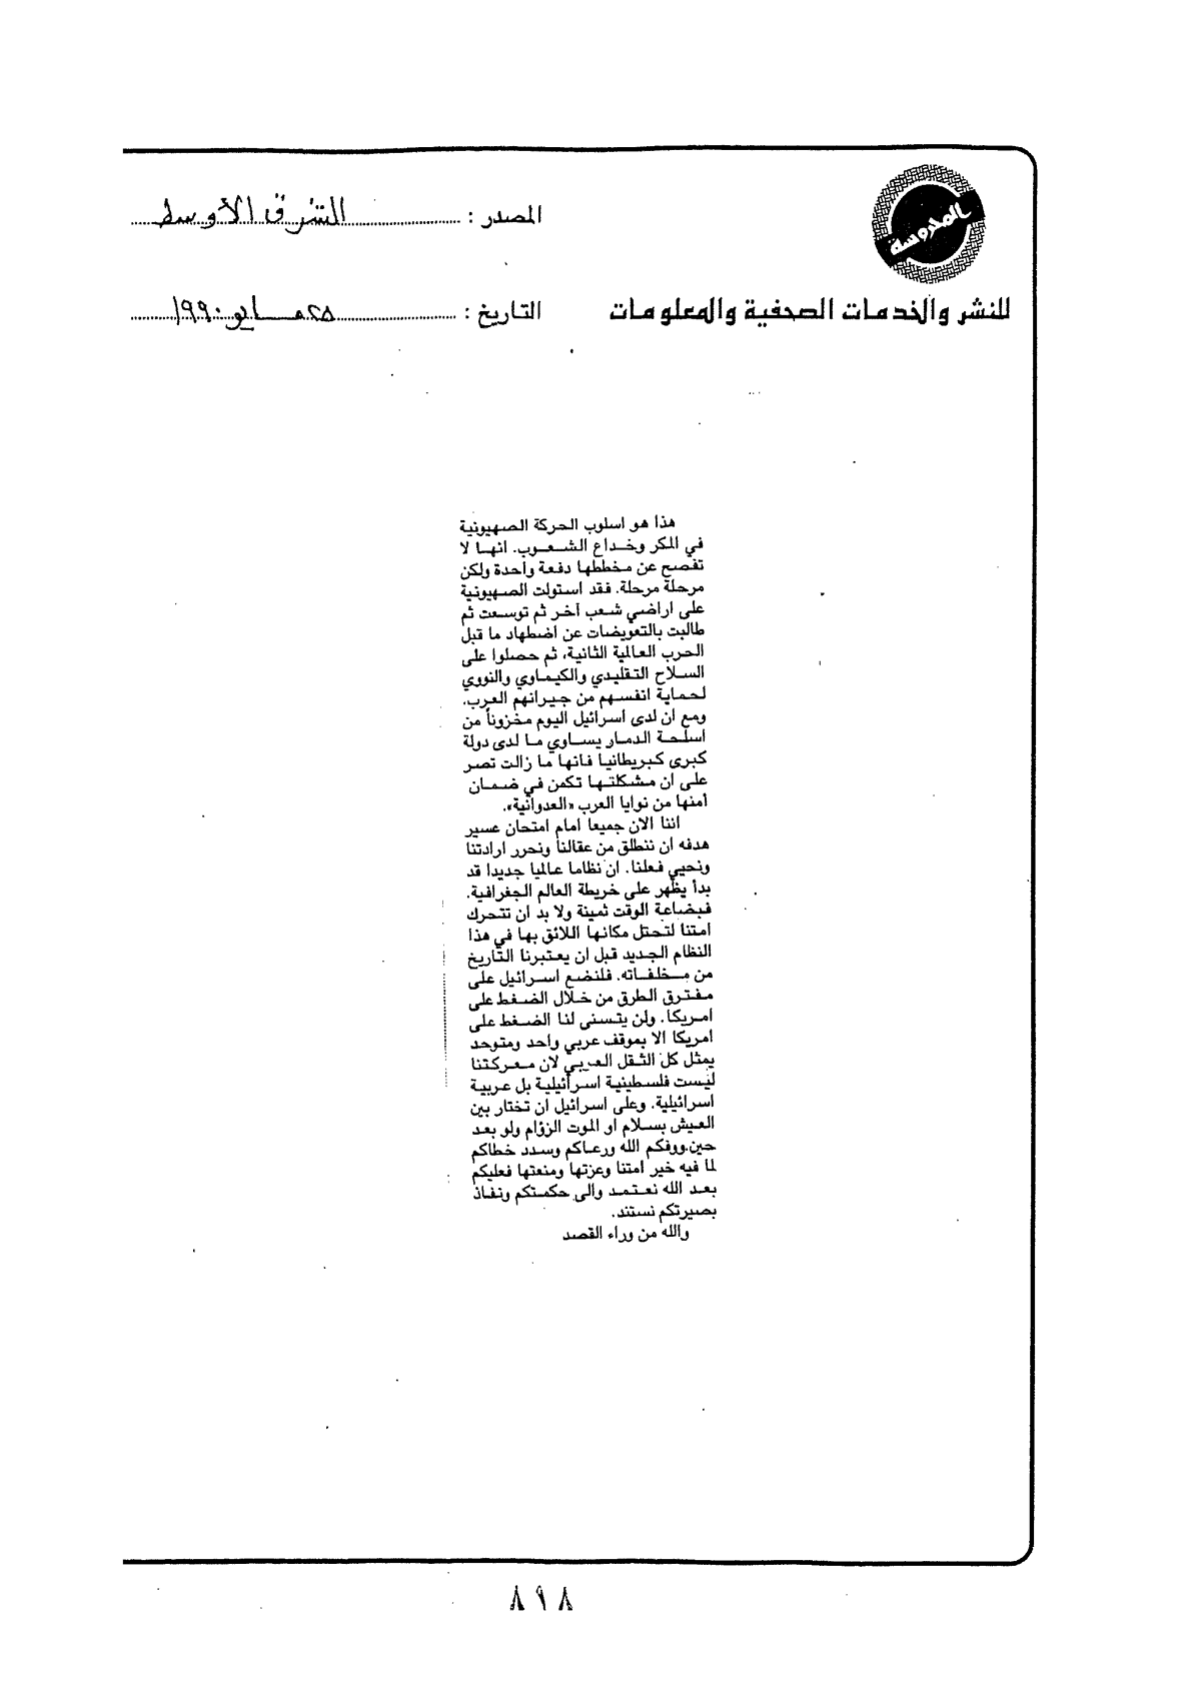 المحروسة
للنشر والخدمات الصحفية والمعلومات
المصدر : الشرق الأوسط
التاريخ : ٢٥ مايو ١٩٩٠
هذا هو اسلوب الحركة الصهيونية
في المكر وخداع الشعوب. انها لا
تفصح عن مخططها دفعة واحدة ولكن
مرحلة مرحلة. فقد استولت الصهيونية
على اراضي شعب آخر ثم توسعت ثم
طالبت بالتعويضات عن اضطهاد ما قبل
الحرب العالمية الثانية، ثم حصلوا على
السلاح التقليدي والكيماوي والنووي
لحماية انفسهم من جيرانهم العرب.
ومع ان لدى اسرائيل اليوم مخزوناً من
اسلحة الدمار يساوي ما لدى دولة
كبرى كبريطانيا فانها ما زالت تصر
على ان مشكلتها تكمن في ضمان
أمنها من نوايا العرب «العدوانية».
اننا الان جميعا امام امتحان عسير
هدفه ان ننطلق من عقالنا ونحرر ارادتنا
ونحيي فعلنا. ان نظاما عالميا جديدا قد
بدأ يظهر على خريطة العالم الجغرافية.
فبضاعة الوقت ثمينة ولا بد ان تتحرك
امتنا لتحتل مكانها اللائق بها في هذا
النظام الجديد قبل ان يعتبرنا التاريخ
من مخلفاته. فلنضع اسرائيل على
مفترق الطرق من خلال الضغط على
امريكا. ولن يتسنى لنا الضغط على
امريكا الا بموقف عربي واحد ومتوحد
يمثل كل الثقل العربي لان معركتنا
ليست فلسطينية اسرائيلية بل عربية
اسرائيلية. وعلى اسرائيل ان تختار بين
العيش بسلام او الموت الزؤام ولو بعد
حين.ووفكم الله ورعاكم وسدد خطاكم
لما فيه خير امتنا وعزتها ومنعتها فعليكم
بعد الله نعتمد والى حكمتكم ونفاذ
بصيرتكم نستند.
والله من وراء القصد
٨٩٨